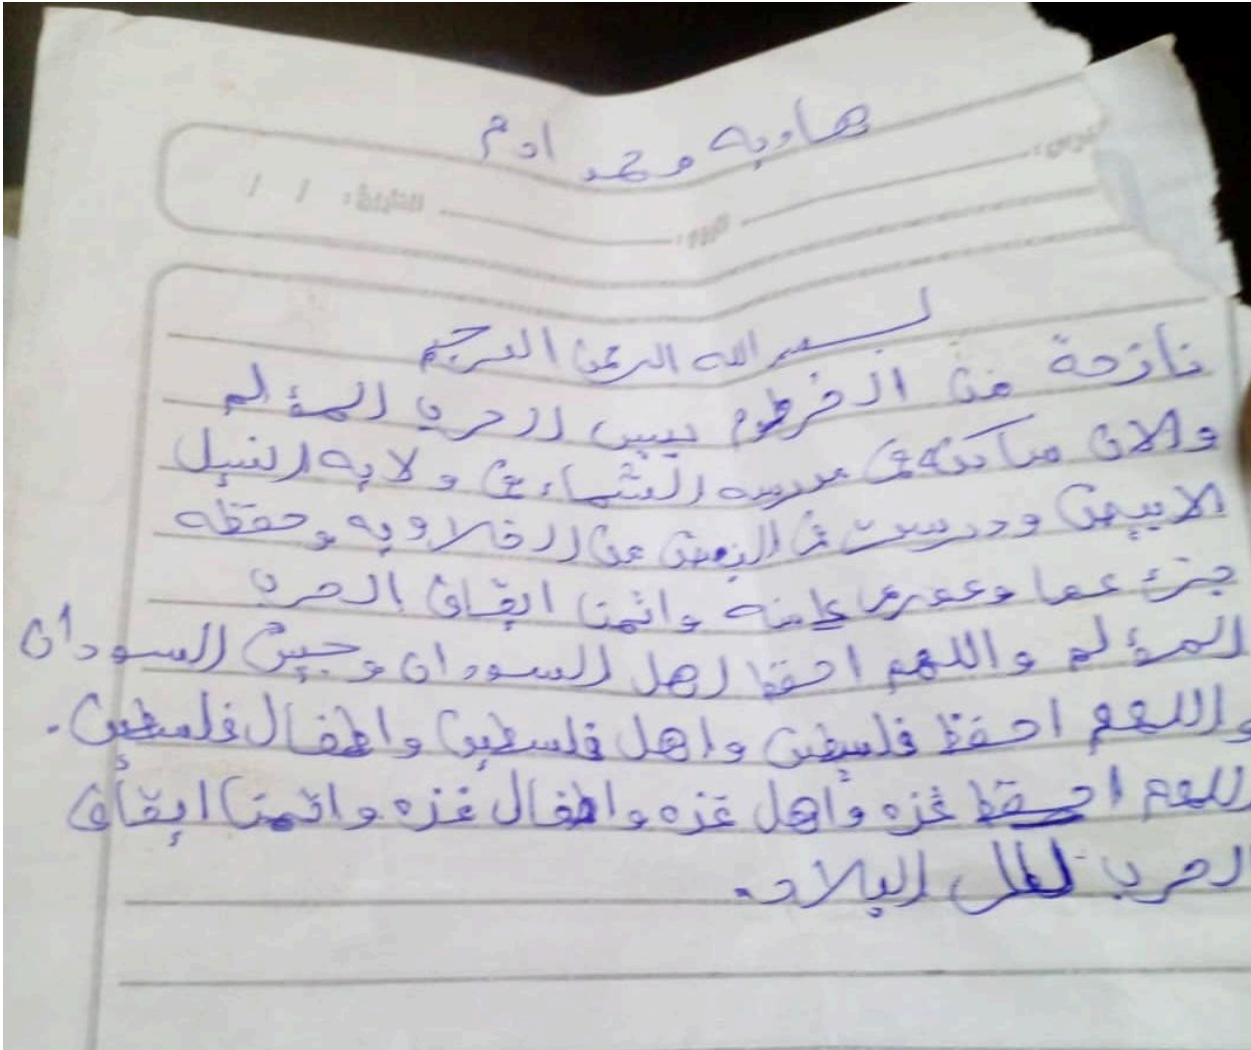 هادية محمد ادم
التاريخ: / /
بسم الله الرحمن الرحيم
نازحة من الخرطوم بسبب الحرب المؤلم
والان ساكنه في مدرسه الشهداء في ولايه النيل
الابيض ودرست في البعض من الخلاويه وحفظه
جزء عما وعمري منه واتمنا ايقاف الحرب
المؤلم واللهم احفظ اهل السودان وجيش السودان
واللهم احفظ فلسطين واهل فلسطين واطفال فلسطين.
اللهم احفظ غزه وأهل غزه واطفال غزه واتمنا ايقاف
الحرب لكل البلاد.